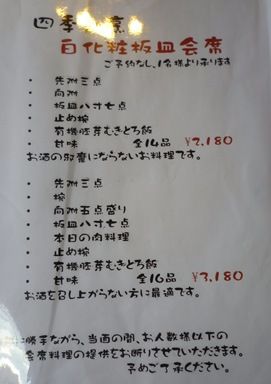 四季
白化粧板皿会席
ご予約なし、1名様より承ります
・ 先附三点
・ 向附
・ 板皿八寸七点
・ 止め椀
・ 有機胚芽むぎとろ飯
・ 甘味 全14品 ¥2,180
お酒の邪魔にならないお料理です。
・ 先附三点
・ 椀
・ 向附五点盛り
・ 板皿八寸七点
・ 本日の肉料理
・ 止め椀
・ 有機胚芽むぎとろ飯
・ 甘味 全16品 ¥3,180
お酒を召し上がらない方に最適です。
勝手ながら、当面の間、お人数様以下の
会席料理の提供をお断りさせていただきます。
予めご了承ください。